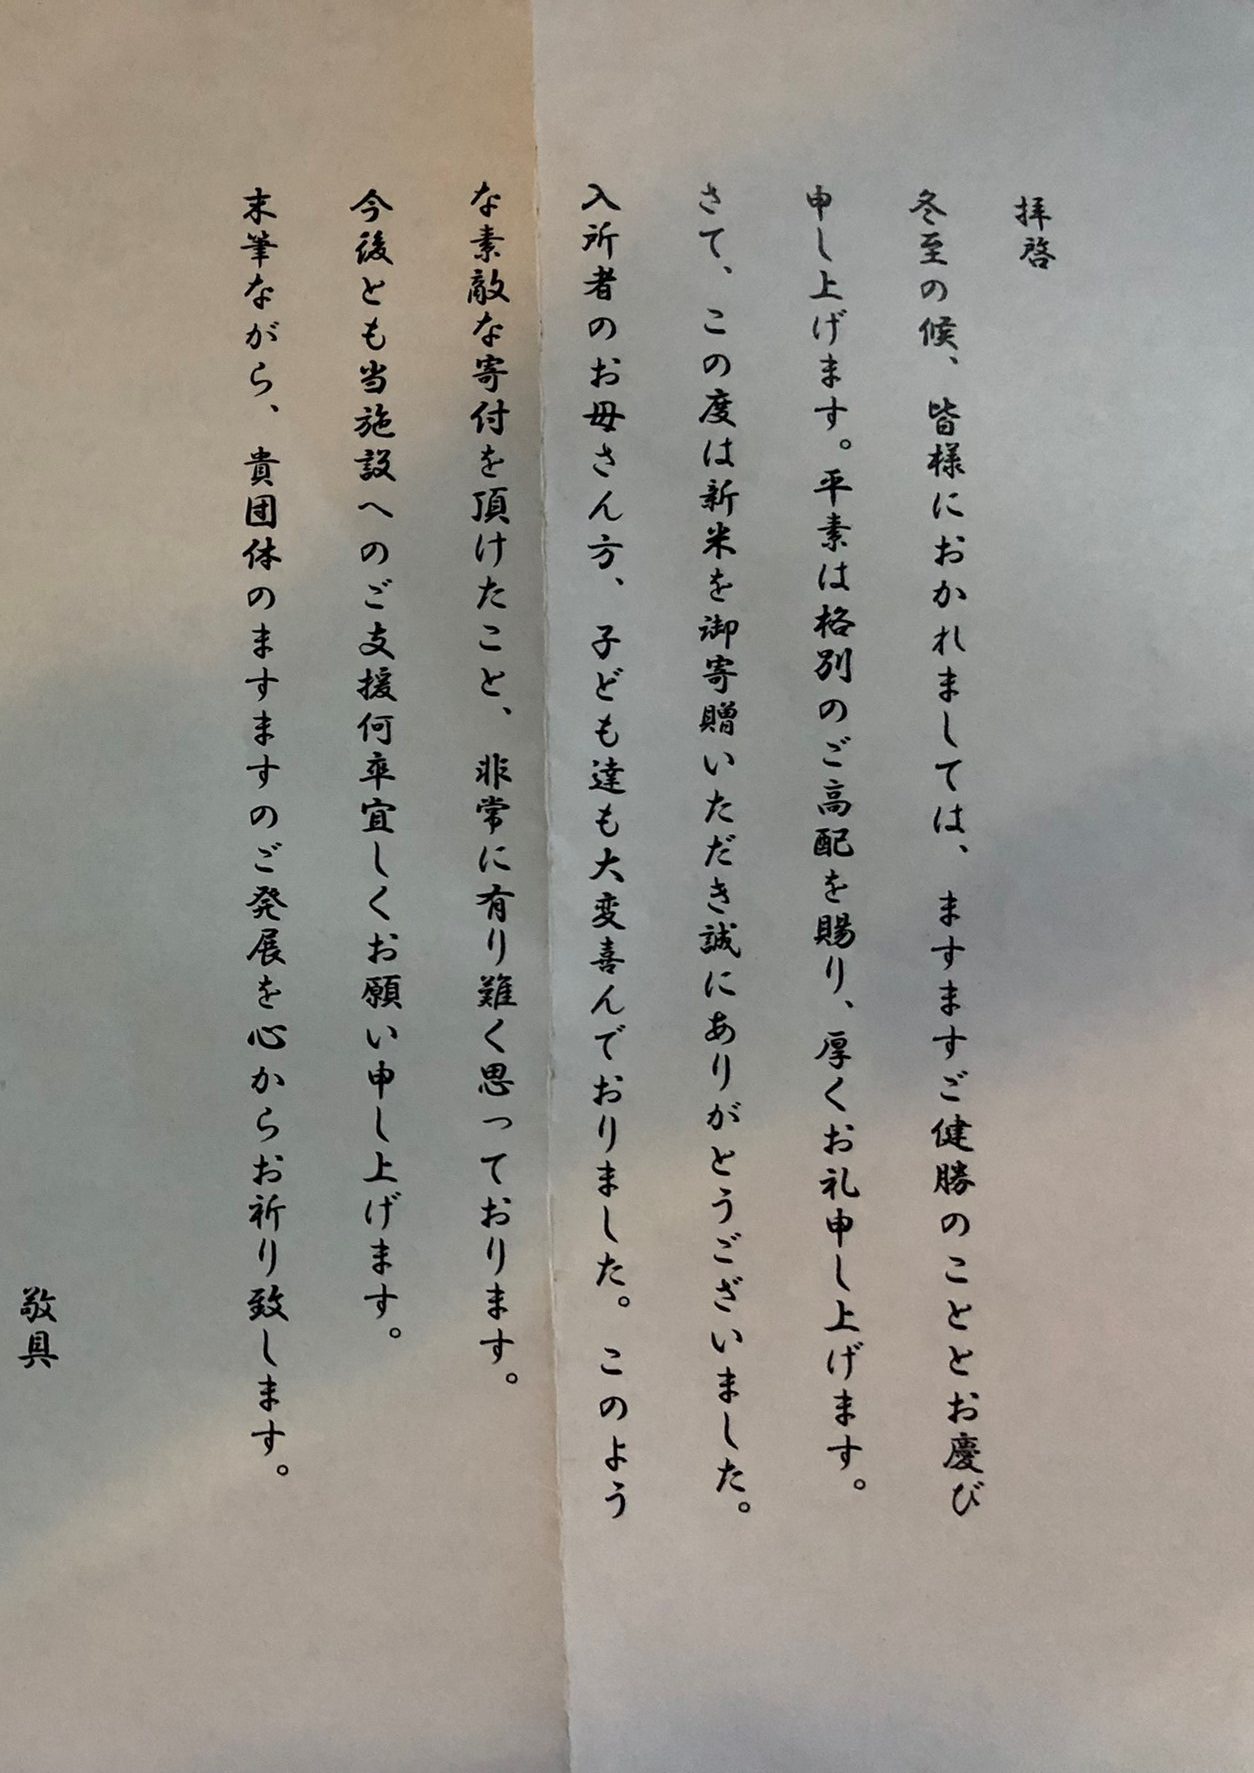 拝啓
冬至の候、皆様におかれましては、ますますご健勝のこととお慶び
申し上げます。平素は格別のご高配を賜り、厚くお礼申し上げます。
さて、この度は新米を御寄贈いただき誠にありがとうございました。
入所者のお母さん方、子ども達も大変喜んでおりました。このよう
な素敵な寄付を頂けたこと、非常に有り難く思っております。
今後とも当施設へのご支援何卒宜しくお願い申し上げます。
末筆ながら、貴団体のますますのご発展を心からお祈り致します。
敬具